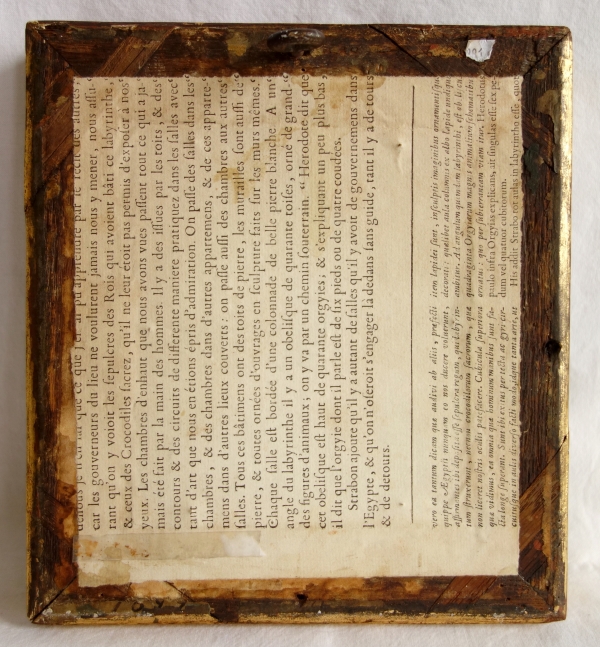 dehors je n'en sai que ce que j'en ai pû apprendre par le recit des autres,
car les gouverneurs du lieu ne voulurent jamais nous y mener, nous assu-
rant qu'on y voioit les sepulcres des Rois qui avoient bâti ce labyrinthe,
& ceux des Crocodiles sacrez, qu'il ne leur étoit pas permis d'exposer à nos
yeux. Les chambres d'enhaut que nous avons vues passent tout ce qui a ja-
mais été fait par la main des hommes. Il y a des issues par les toits, & des
contours & des circuits de differente maniere pratiquez dans les salles avec
tant d'art que nous en étions épris d'admiration. On passe des salles dans les
chambres, & des chambres dans d'autres appartemens, & de ces apparte-
mens dans d'autres lieux couverts: on passe aussi des chambres aux autres
salles. Tous ces bâtimens ont des toits de pierre, les murailles sont aussi de
pierre, & toutes ornées d'ouvrages en sculpture faits sur les murs mêmes.
Chaque salle est bordée d'une colonnade de belle pierre blanche. A un
angle du labyrinthe il y a un obelisque de quarante toises, orné de grand-
des figures d'animaux; on y va par un chemin souterrain. “ Herodote dit que
cet obelisque est haut de quarante orgyies; & s'expliquant un peu plus bas,
il dit que l'orgyie dont il parle est de six pieds ou de quatre coudées.
Strabon ajoute qu'il y a autant de salles qu'il y avoit de gouvernemens dans
l'Egypte, & qu'on n'oseroit s'engager là dedans sans guide, tant il y a de tours
& de detours.
vero ea tantum dicam quæ audivi ab aliis, præfecti
quippe Ægyptii nunquam eo nos ducere voluerunt,
tum struxerunt, necnon crocodilorum sacrorum, quæ
non liceret nostris oculis patefacere. Cubicula superiora
quæ vidimus, ea omnia quæ hominum manibus
item lapidei sunt, insculptis imaginibus
quadraginta Orgyiarum magnis animalium schematibus
ornatus: quo per subterraneam viam itur. Herodotus
paulo infra Orgyias explicans, ait singulas esse sex pe-
dum vel quatuor cubitorum.
His addit Strabo tot aulas in labyrintho esse, quot